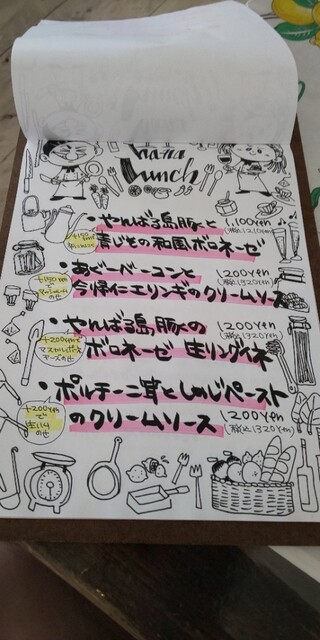 Lunch
・やんばる島豚と 1,100yen
(税込1210yen)
青じその和風ボロネーゼ
・あぐーベーコンと 1,200yen
(税込1320yen)
今帰仁エリンギのクリームソース
・やんばる島豚の 1,200yen
(税込1320yen)
ボロネーゼ 生リングイネ
+200yenで
マスカルポーネ
チーズのせ
・ポルチーニ茸としめじペースト
のクリームソース 1,200yen
(税込1320yen)
+200yen
で
生ハム
のせ